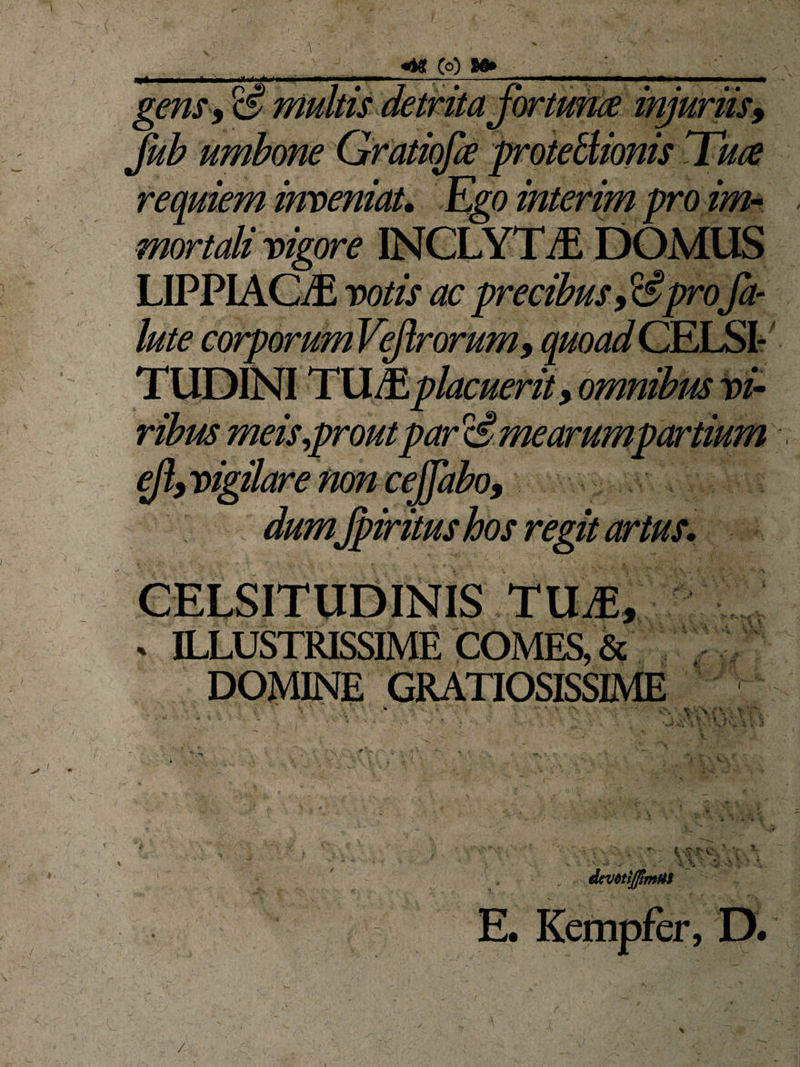 (o)
gens, & multis detrita fortunæ injuriis,
ſub umbone Gratioſæ protectionis Tuæ
requiem inveniat. Ego interim pro im-
mortali vigore INCLYTÆ DOMUS
LIPPIACÆ votis ac precibus, & pro ſa-
lute corporum Veſtrorum, quoad CELSI-
TUDINI TUÆ placuerit, omnibus vi-
ribus meis, prout par & mearum partium
eſt, vigilare non ceſſabo,
dum ſpiritus hos regit artus.
CELSITUDINIS TUÆ,
ILLUSTRISSIME COMES, &
DOMINE GRATIOSISSIME
devotiſſimus
E. Kempfer, D.